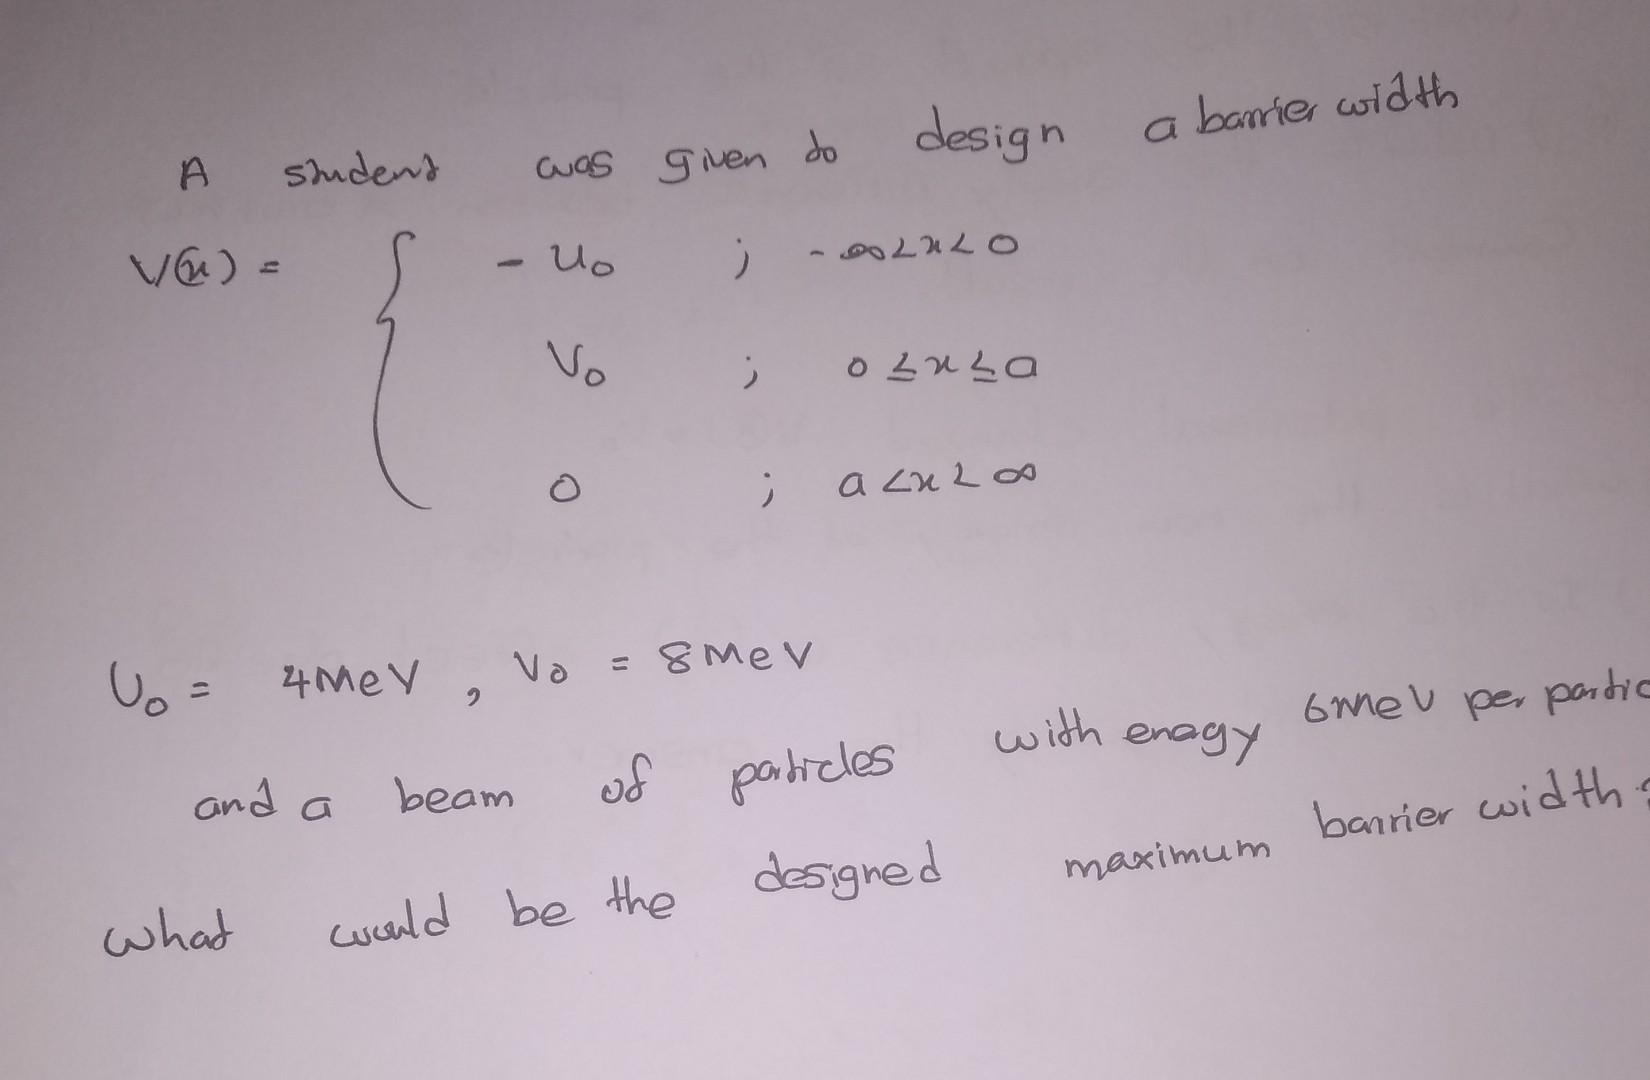 A student was given to design a barrier width
V(x) = { - U0 ; -∞<x<0
V0 ; 0≤x≤a
0 ; a<x<∞
U0 = 4MeV, V0 = 8MeV
and a beam of particles with enegy 6MeV per
what would be the designed maximum barrier width?